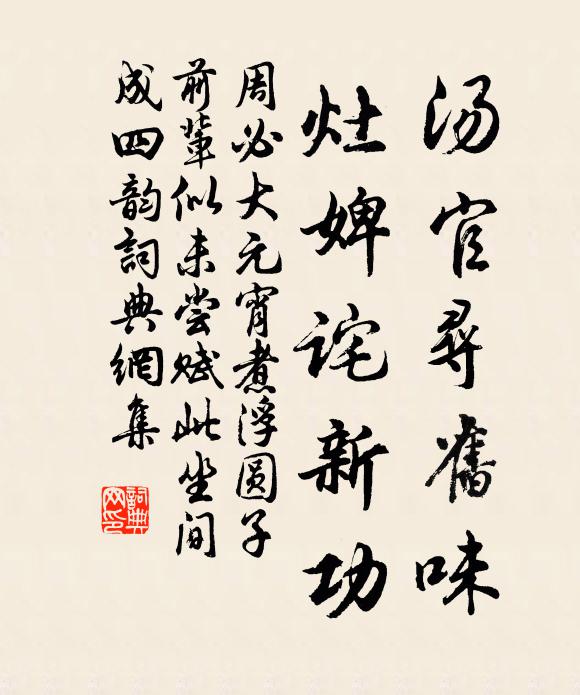 汤官寻舊味
灶婢诧新功
周必大元宵煮浮圆子
前輩似未尝赋此坐间
成四韵詞典網集
詞典网印